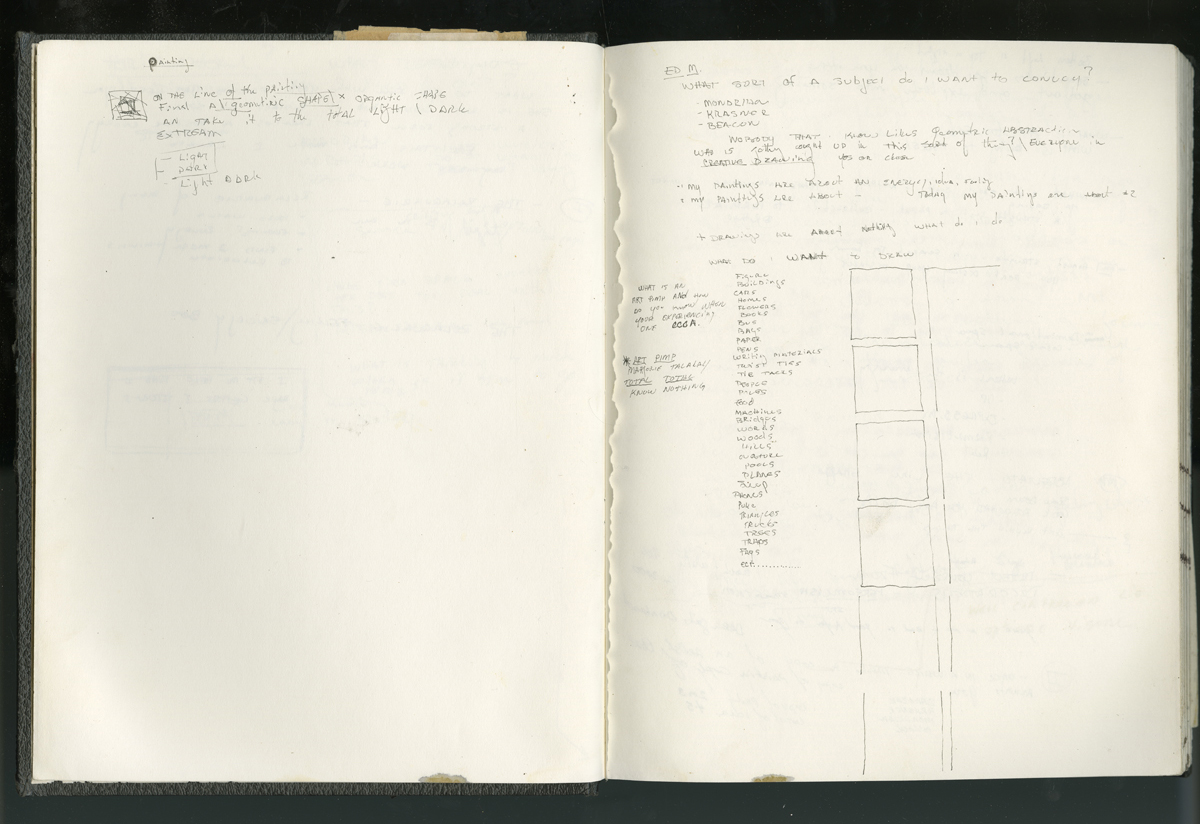 Painting
ON THE LINE of the painting
Find A geometric SHAPE x organtic SHAPE
AN TAKE it to the total Light \ DARK
EXTREAM
- Light
- DARK
- Light DARK
ED M.
WHAT SORT of A Subject do I WANT to CONVEY?
- MONDRIAN
- KRASNER
- BEACON
NOBODY THAT I KNOW Likes Geometric ABSTRACTION
WHO IS caught UP in this sort of thing? \ EVERYONE in
CREATIVE DRAWING yes or close
- my PAINTINGS ARE ABOUT AN ENERGY, idea,
- my PAINTINGS ARE ABOUT - my PAINTINGS are about
+ DRAWINGS ARE ABOUT nothing WHAT do I do
WHAT DO I WANT to DRAW
WHAT IS AN
ART PIMP AND HOW
DO you KNOW WHEN
YOUR EXPERIENCING
ONE
* ART PIMP
MARJORIE TALALAY
TOTAL TOTAL
KNOW NOTHING
FIGURE
BUILDINGS
CARS
HOMES
FLOWERS
BOOKS
BUS
BAGS
PAPER
PENS
WRITING MATERIALS
TWIST TIES
TIE TACKS
PEOPLE
food
MACHINES
BRIDGES
WORDS
WOODS
HILLS
POOLS
PLANES
PHONES
Puke
TRUCKS
TREES
TRAPS
ect.............